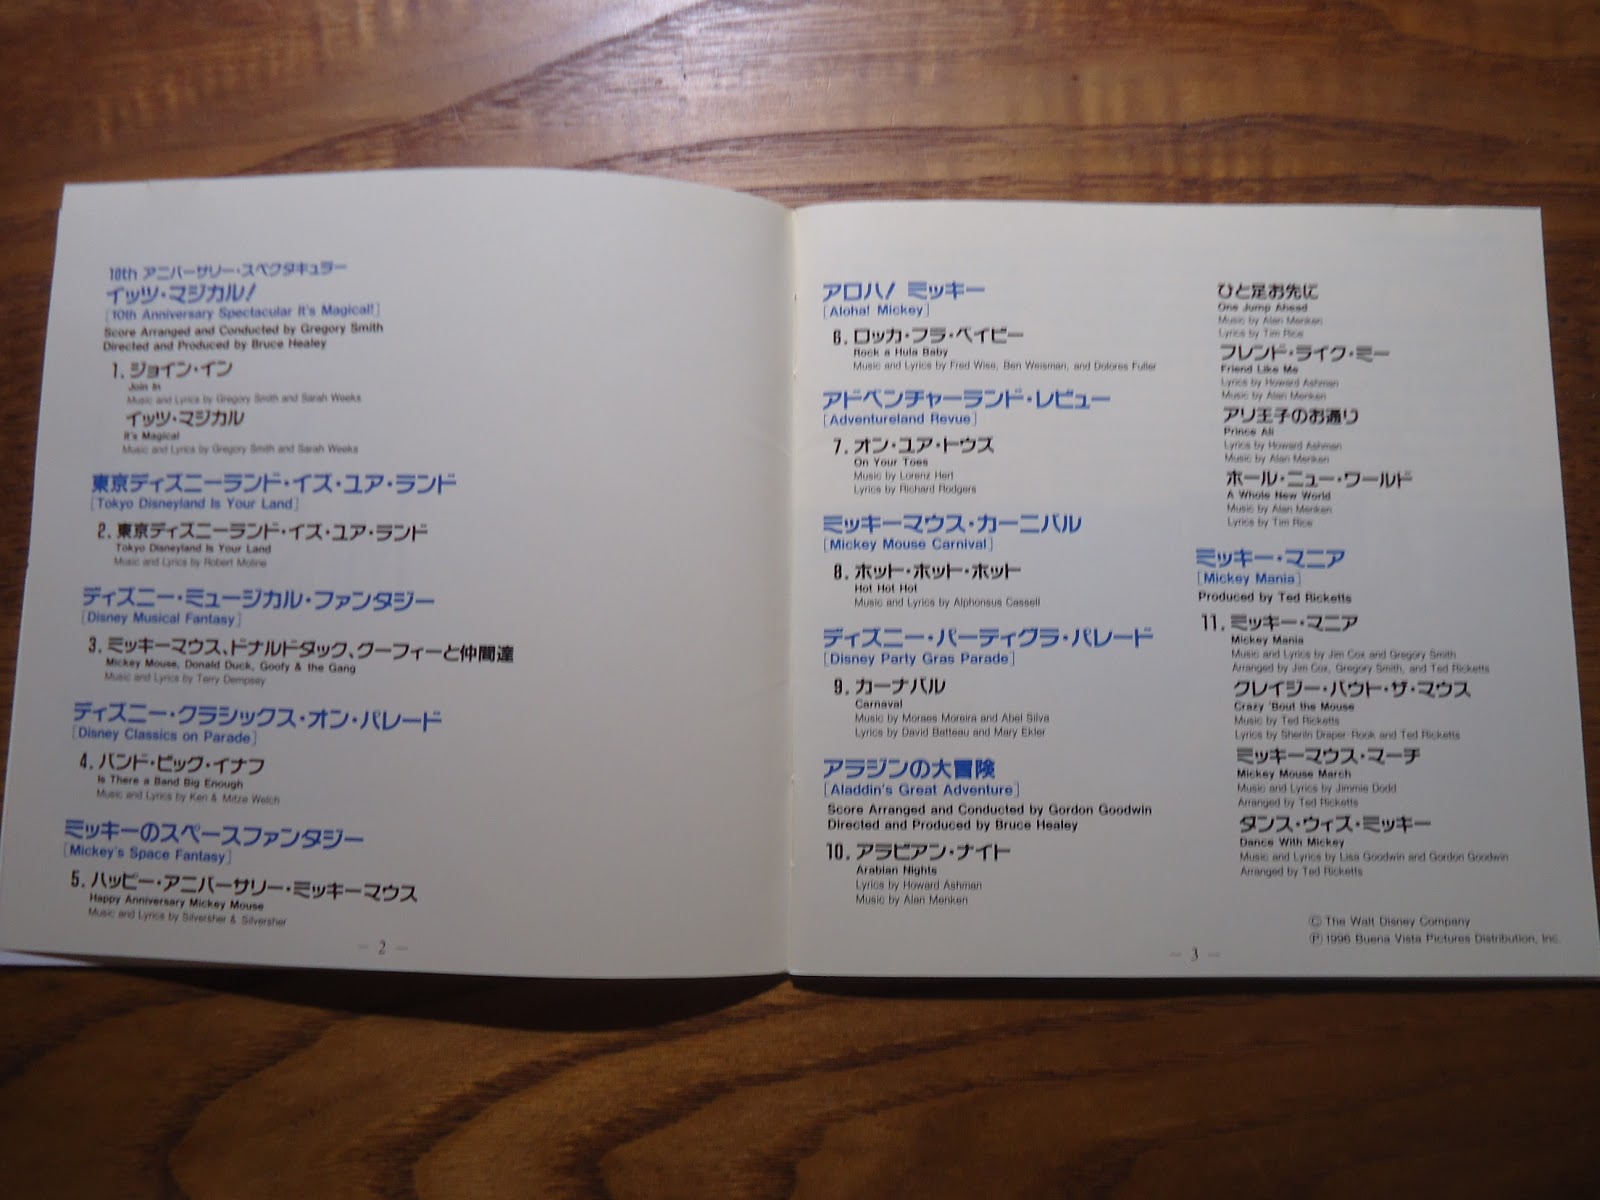 10th アニバーサリー・スペクタキュラー
イッツ・マジカル!
[10th Anniversary Spectacular It's Magical!]
Score Arranged and Conducted by Gregory Smith
Directed and Produced by Bruce Healey
1. ジョイン・イン
Join In
Music and Lyrics by Gregory Smith and Sarah Weeks
イッツ・マジカル
It's Magical
Music and Lyrics by Gregory Smith and Sarah Weeks
東京ディズニーランド・イズ・ユア・ランド
[Tokyo Disneyland Is Your Land]
2. 東京ディズニーランド・イズ・ユア・ランド
Tokyo Disneyland Is Your Land
Music and Lyrics by Robert Moline
ディズニー・ミュージカル・ファンタジー
[Disney Musical Fantasy]
3. ミッキーマウス、ドナルドダック、グーフィーと仲間達
Mickey Mouse, Donald Duck, Goofy & the Gang
Music and Lyrics by Terry Dempsey
ディズニー・クラシックス・オン・パレード
[Disney Classics on Parade]
4. バンド・ビッグ・イナフ
Is There a Band Big Enough
Music and Lyrics by Ken & Mitze Welch
ミッキーのスペースファンタジー
[Mickey's Space Fantasy]
5. ハッピー・アニバーサリー・ミッキーマウス
Happy Anniversary Mickey Mouse
Music and Lyrics by Silversher & Silversher
— 2 —
アロハ! ミッキー
[Aloha! Mickey]
6. ロッカ・フラ・ベイビー
Rock a Hula Baby
Music and Lyrics by Fred Wise, Ben Weisman, and Dolores Fuller
アドベンチャーランド・レビュー
[Adventureland Revue]
7. オン・ユア・トウズ
On Your Toes
Music by Lorenz Hert
Lyrics by Richard Rodgers
ミッキーマウス・カーニバル
[Mickey Mouse Carnival]
8. ホット・ホット・ホット
Hot Hot Hot
Music and Lyrics by Alphonsus Cassell
ディズニー・パーティグラ・パレード
[Disney Party Gras Parade]
9. カーナバル
Carnaval
Music by Moraes Moreira and Abel Silva
Lyrics by David Batteau and Mary Ekler
アラジンの大冒険
[Aladdin's Great Adventure]
Score Arranged and Conducted by Gordon Goodwin
Directed and Produced by Bruce Healey
10. アラビアン・ナイト
Arabian Nights
Lyrics by Howard Ashman
Music by Alan Menken
ひと足お先に
One Jump Ahead
Music by Alan Menken
Lyrics by Tim Rice
フレンド・ライク・ミー
Friend Like Me
Lyrics by Howard Ashman
Music by Alan Menken
アリ王子のお通り
Prince Ali
Lyrics by Howard Ashman
Music by Alan Menken
ホール・ニュー・ワールド
A Whole New World
Music by Alan Menken
Lyrics by Tim Rice
ミッキー・マニア
[Mickey Mania]
Produced by Ted Ricketts
11. ミッキー・マニア
Mickey Mania
Music and Lyrics by Jim Cox and Gregory Smith
Arranged by Jim Cox, Gregory Smith, and Ted Ricketts
クレイジー・バウト・ザ・マウス
Crazy 'Bout the Mouse
Music by Ted Ricketts
Lyrics by Sherilin Draper-Rook and Ted Ricketts
ミッキーマウス・マーチ
Mickey Mouse March
Music and Lyrics by Jimmie Dodd
Arranged by Ted Ricketts
ダンス・ウィズ・ミッキー
Dance With Mickey
Music and Lyrics by Lisa Goodwin and Gordon Goodwin
Arranged by Ted Ricketts
© The Walt Disney Company
℗ 1996 Buena Vista Pictures Distribution, Inc.
— 3 —